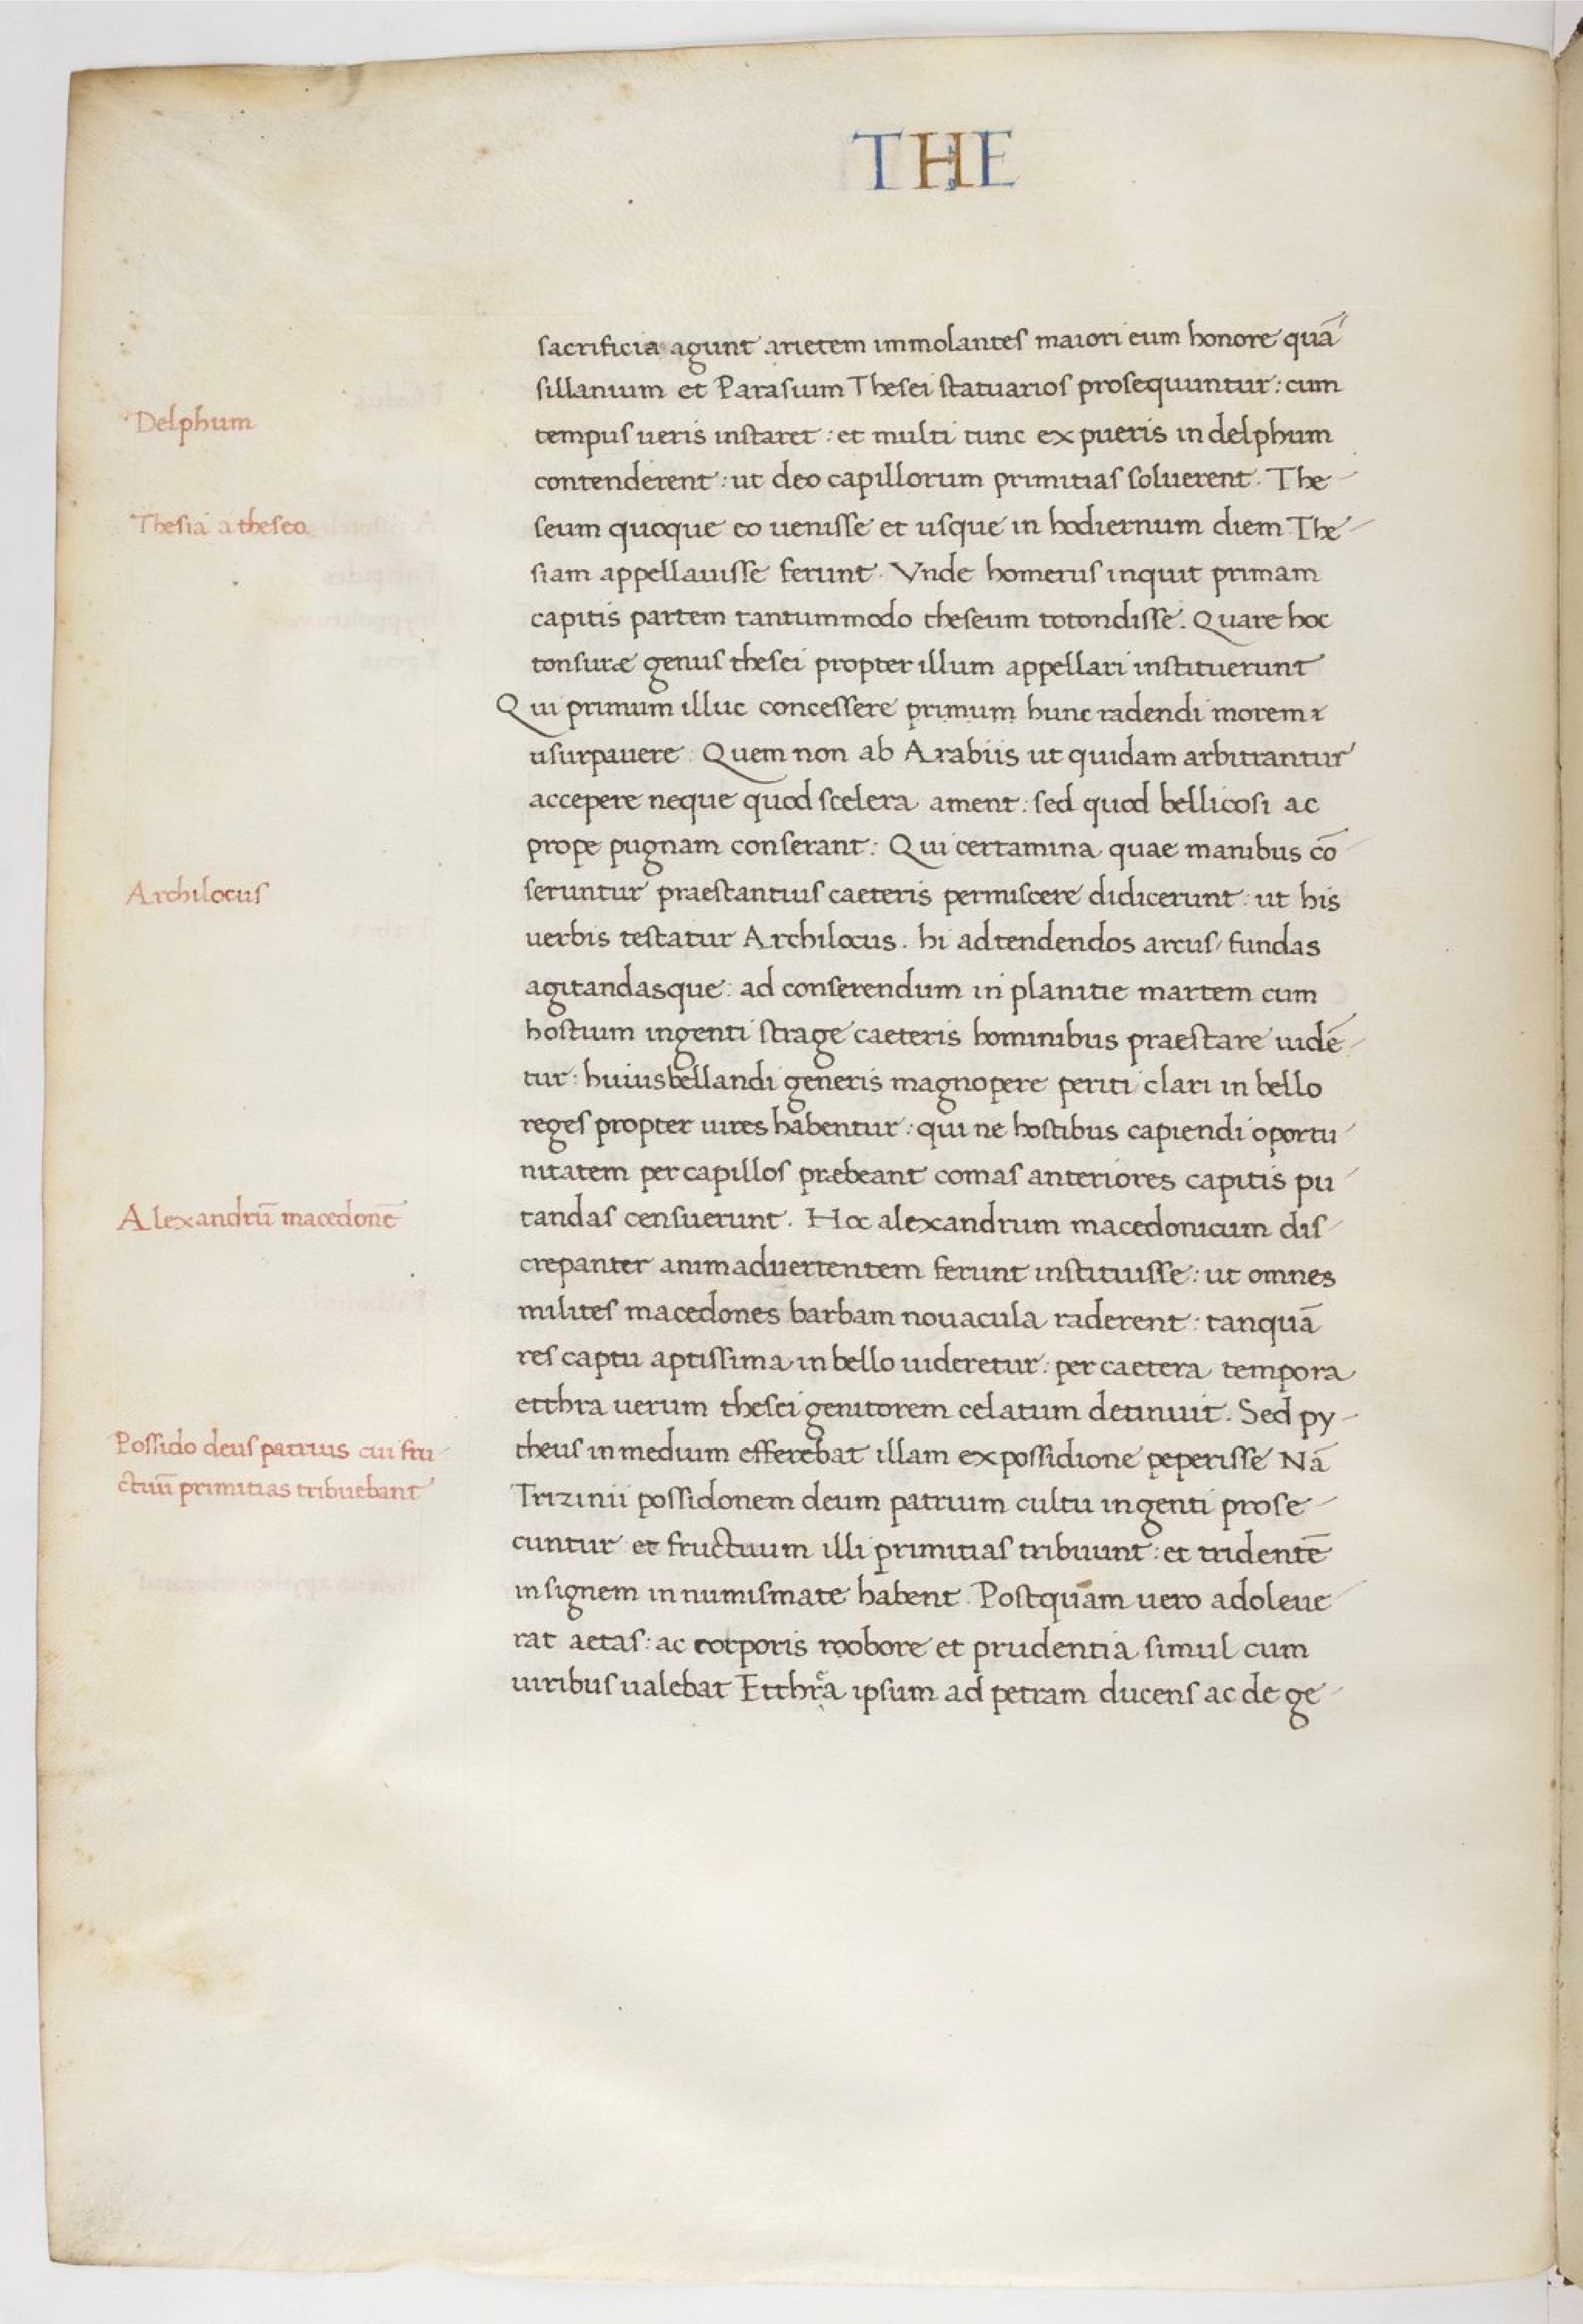 THE
sacrificia agunt arietem immolantes maiori eum honore quā
sillanium et Parasium Thesei statuarios prosequuntur: cum
Delphum
tempus ueris instaret: et multi tunc ex pueris in delphum
contenderent: ut deo capillorum primitias soluerent. The
Thesia a theseo
seum quoque eo uenisse et usque in hodiernum diem The
siam appellauisse ferunt. Vnde homerus inquit primam
capitis partem tantummodo theseum totondisse. Quare hoc
tonsuræ genus thesei propter illum appellari instituerunt
Qui primum illuc concessere primum hunc radendi morem
usurpauere. Quem non ab Arabiis ut quidam arbitrantur
accepere neque quod scelera ament: sed quod bellicosi ac
prope pugnam conserant: Qui certamina quae manibus cō
Archilocus
seruntur praestantius caeteris permiscere didicerunt: ut his
uerbis testatur Archilocus. hi ad tendendos arcus, fundas
agitandasque: ad conserendum in planitie martem cum
hostium ingenti strage caeteris hominibus praestare uidē
tur: huius bellandi generis magnopere periti clari in bello
reges propter uires habentur: qui ne hostibus capiendi oportu
nitatem per capillos præbeant comas anteriores capitis pu
Alexandrū macedonē
tandas censuerunt. Hoc alexandrum macedonicum dis
crepanter animaduertentem ferunt instituisse: ut omnes
milites macedones barbam nouacula raderent: tanquā
res captu aptissima in bello uideretur: per caetera tempora
etthra uerum thesei genitorem celatum detinuit. Sed py
Possido deus patrius cui fru
ctuū primitias tribuebant
theus in medium efferebat illam ex possidione peperisse Nā
Trizinii possidonem deum patrium cultu ingenti prose
cuntur et fructuum illi primitias tribuunt: et tridentē
insignem in numismate habent. Postquam uero adoleue
rat aetas: ac corporis roobore et prudentia simul cum
uiribus ualebat Etthra ipsum ad petram ducens ac de ge